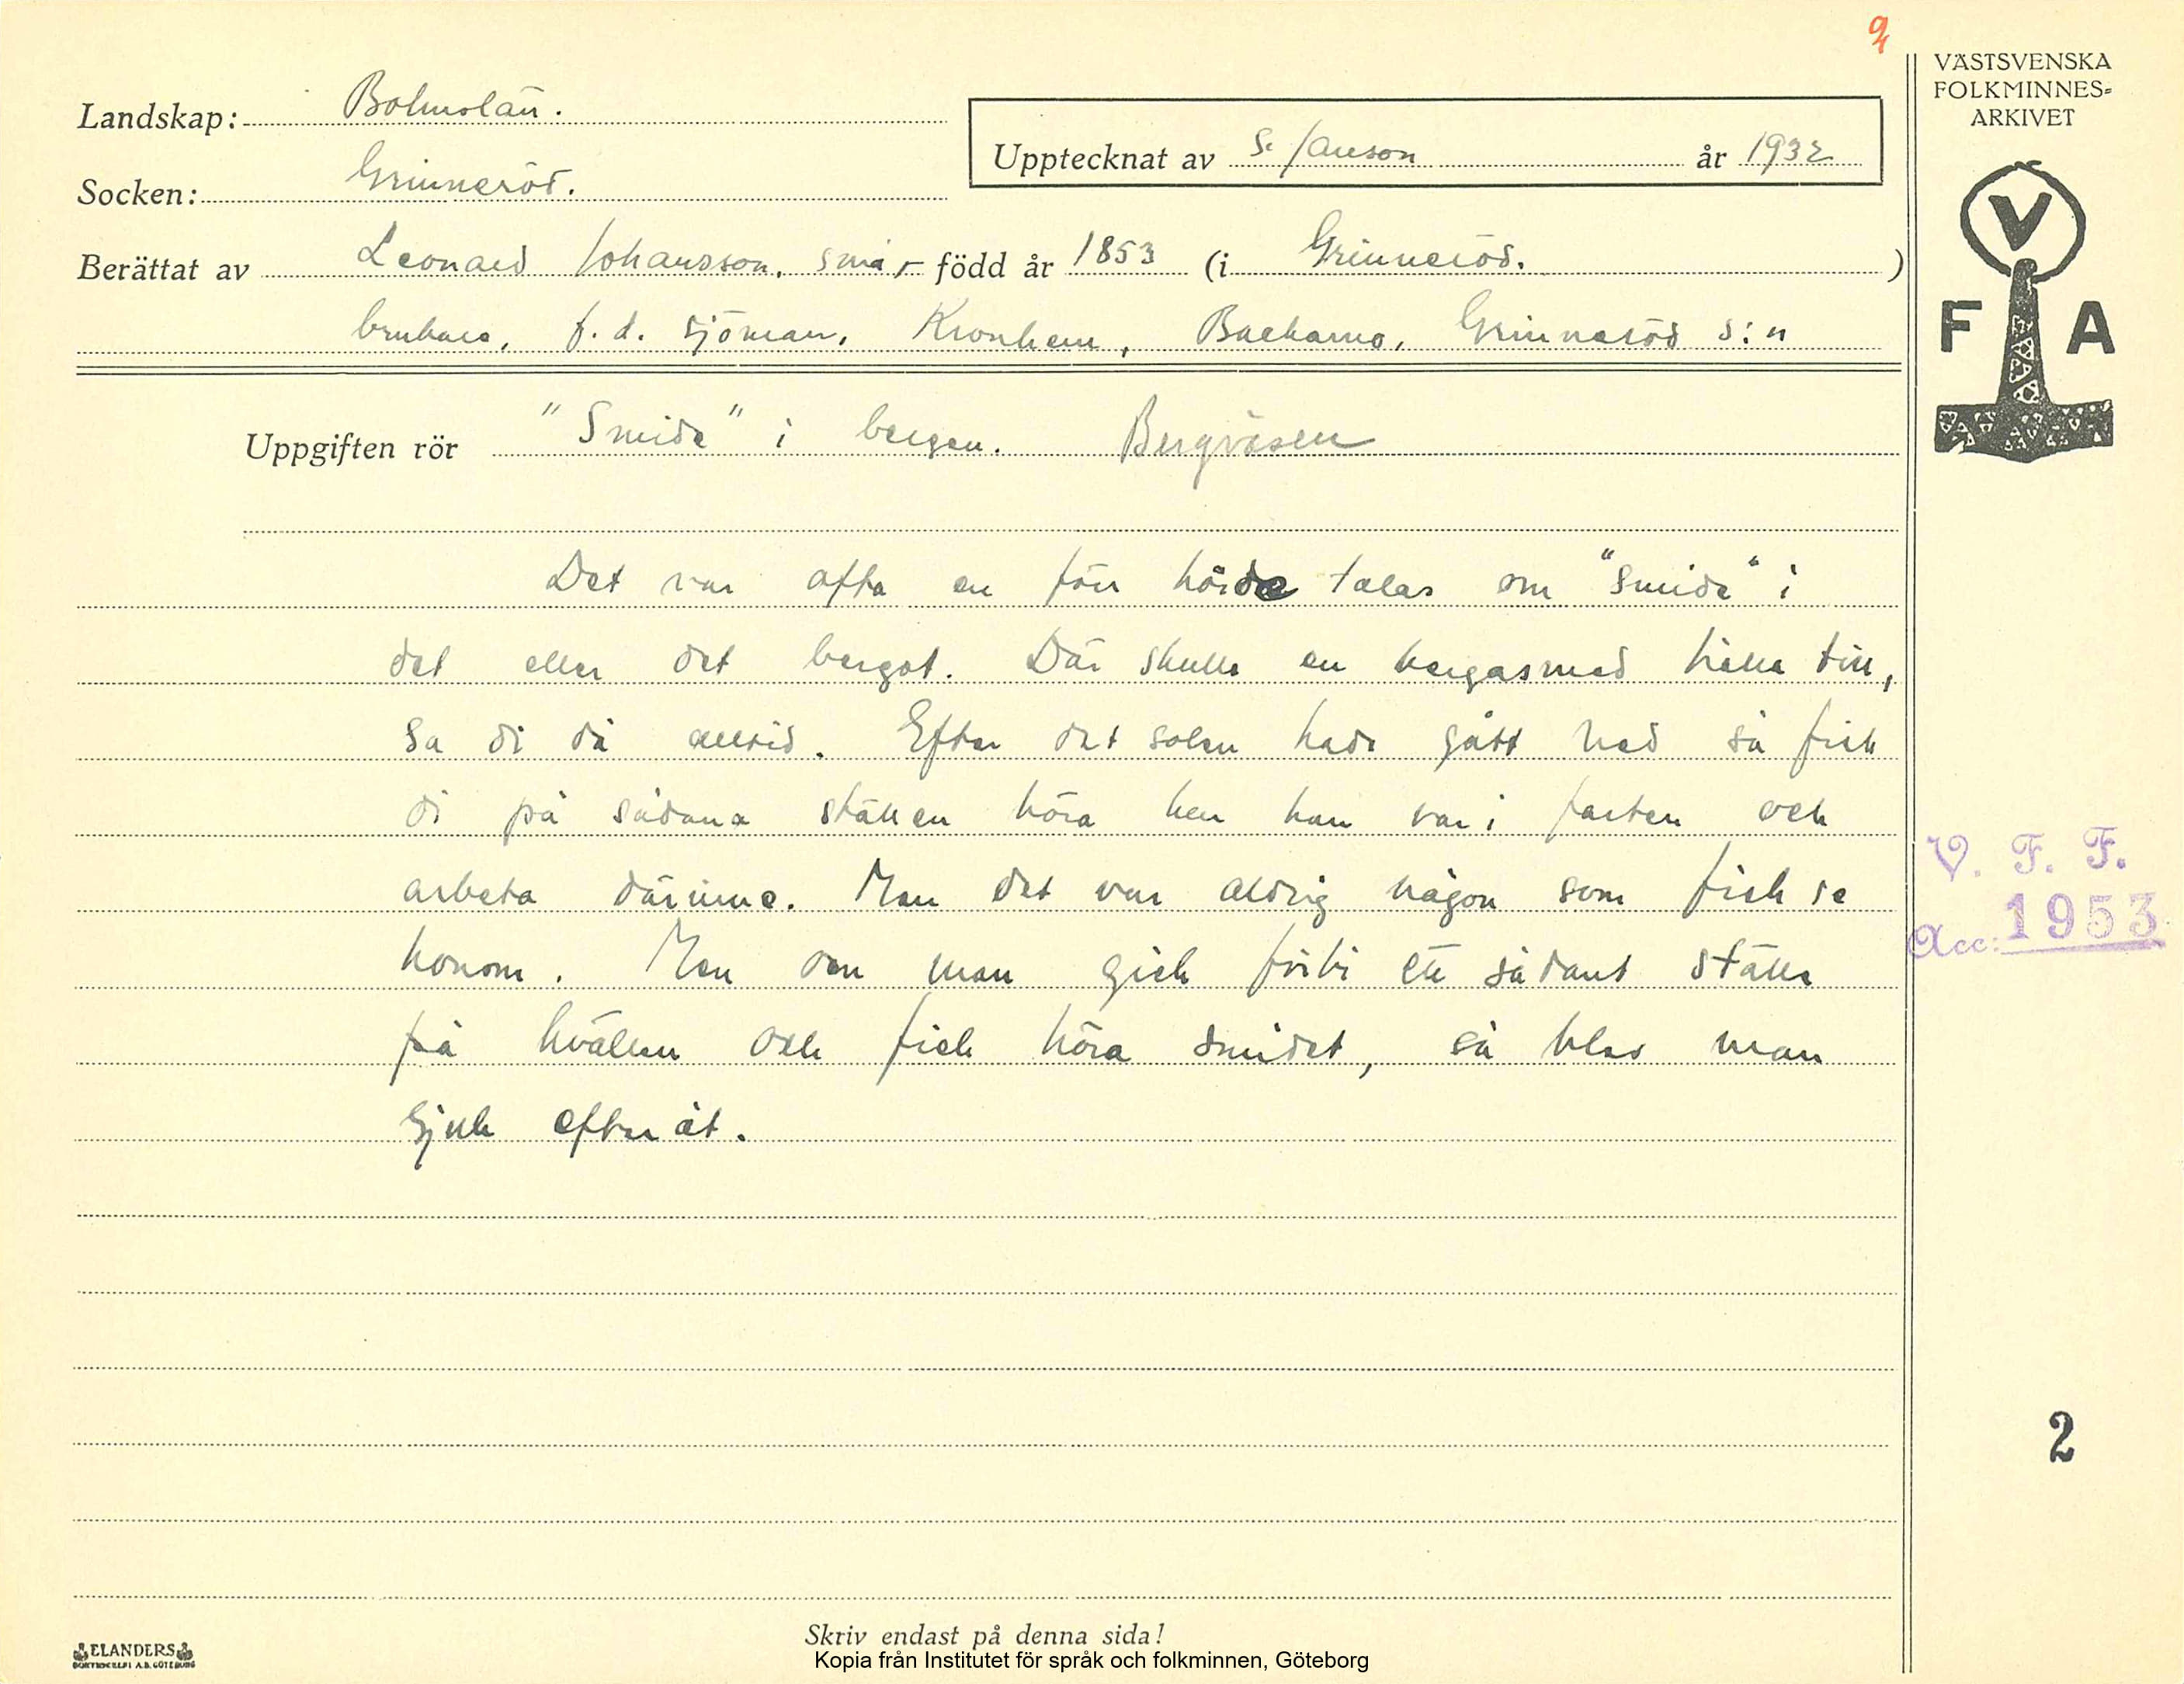 9/4
VÄSTSVENSKA
FOLKMINNES-
ARKIVET
Landskap: Bohuslän.
Upptecknat av S. Janson år 1932
Socken: Grinneröd.
Berättat av Leonard Johansson, små- född år 1853 (i Grinneröd.)
brukare, f.d. sjöman, Kronhem, Backamo, Grinneröd s:n
V
F A
Uppgiften rör "Smide" i bergen. Bergväsen
Det var ofta en förr hörde talas om "smide" i
det eller det berget. Där skulle en bergasmed hålla till,
sa di då alltid. Efter det solen hade gått ned så fick
di på sådana ställen höra hur han var i farten och
arbeta därinne. Men det var aldrig någon som fick se
honom. Men om man gick förbi ett sådant ställe
på kvällen och fick höra smidet, så blev man
sjuk efteråt.
V. F. F.
Acc: 1953
2
Skriv endast på denna sida!
ELANDERS
BOKTRYCKERI A.B. GÖTEBORG
Kopia från Institutet för språk och folkminnen, Göteborg